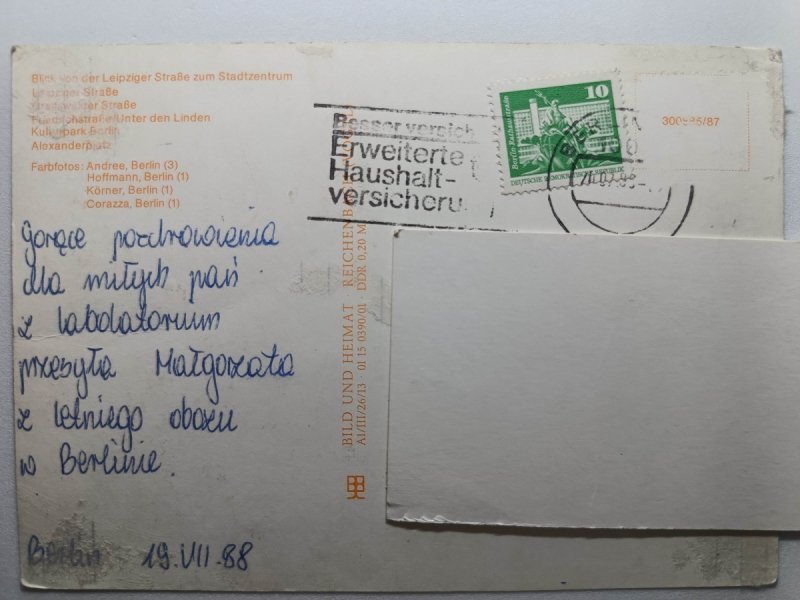 Blick von der Leipziger Straße zum Stadtzentrum
Leipziger Straße
Greifswalder Straße
Friedrichstraße/Unter den Linden
Kulturpark Berlin
Alexanderplatz
Farbfotos: Andree, Berlin (3)
Hoffmann, Berlin (1)
Körner, Berlin (1)
Corazza, Berlin (1)
Besser versich
Erweiterte
Haushalt-
versicheru
10
Berlin Rathausstraße
DEUTSCHE DEMOKRATISCHE REPUBLIK
300985/87
gorące pozdrowienia
dla miłych pań
z labolatorium
przesyła Małgorzata
z letniego obozu
w Berlinie.
Berlin 19.VII.88
BILD UND HEIMAT REICHENB
A1/III/26/13 · 01 15 0390/01 DDR 0,20 M